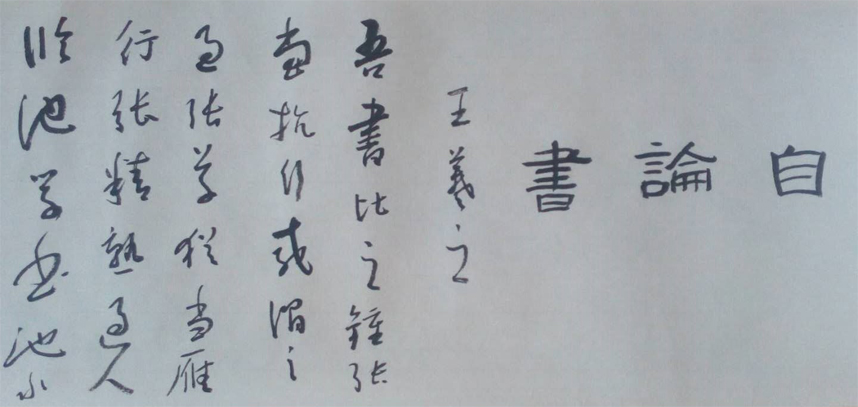 自論書
王羲之
吾書比之鍾張
當抗行或謂之
過張草猶當雁
行張精熟過人
臨池學書池水